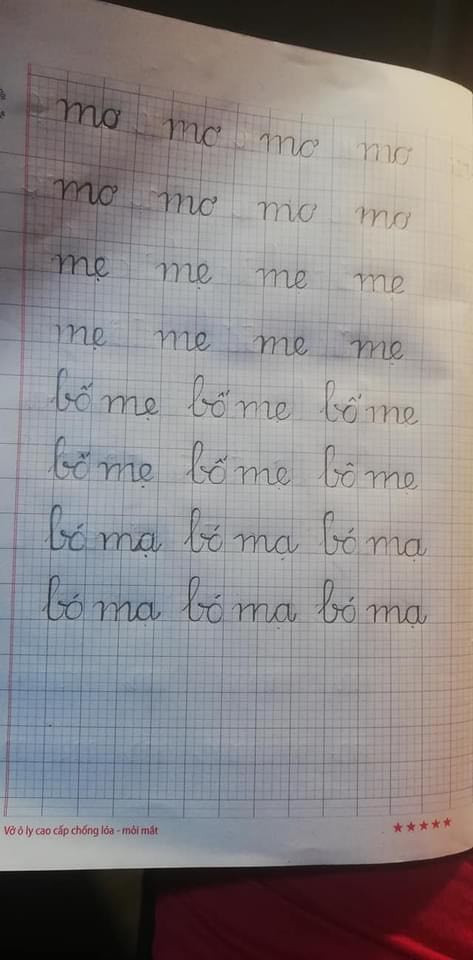 mơ mơ mơ mơ
mơ mơ mơ mơ
mẹ mẹ mẹ mẹ
mẹ mẹ mẹ mẹ
bố mẹ bố mẹ bố mẹ
bố mẹ bố mẹ bố mẹ
bó mạ bó mạ bó mạ
bó mạ bó mạ bó mạ
Vở ô ly cao cấp chống lóa - mỏi mắt